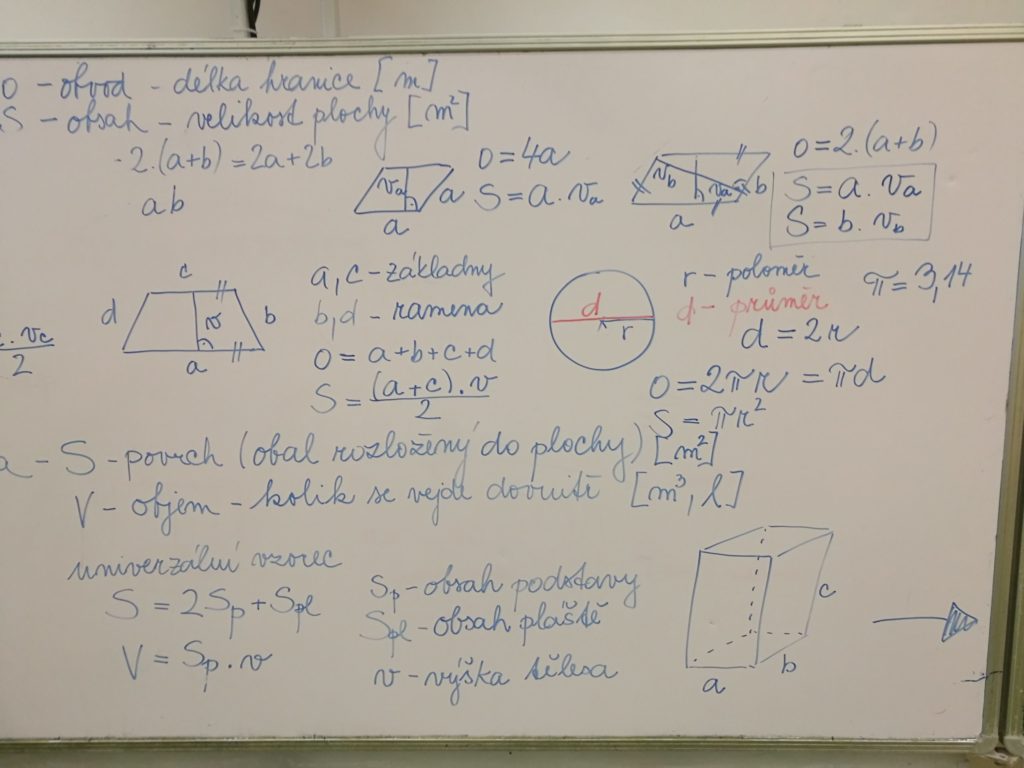 O - obvod - délka hranice [m]
S - obsah - velikost plochy [m²]
2.(a+b) = 2a+2b
ab
vₐ a a
O = 4a
S = a.vₐ
v_b vₐ b a
O = 2.(a+b)
S = a.vₐ
S = b.v_b
c d v b a
a, c - základny
b, d - ramena
O = a+b+c+d
S = (a+c).v / 2
. v_c / 2
d r
r - poloměr
d - průměr
d = 2r
π = 3,14
O = 2πr = πd
S = πr²
a - S - povrch (obal rozložený do plochy) [m²]
V - objem - kolik se vejde dovnitř [m³, l]
univerzální vzorec
S = 2Sₚ + Sₚₗ
V = Sₚ . v
Sₚ - obsah podstavy
Sₚₗ - obsah pláště
v - výška tělesa
a b c